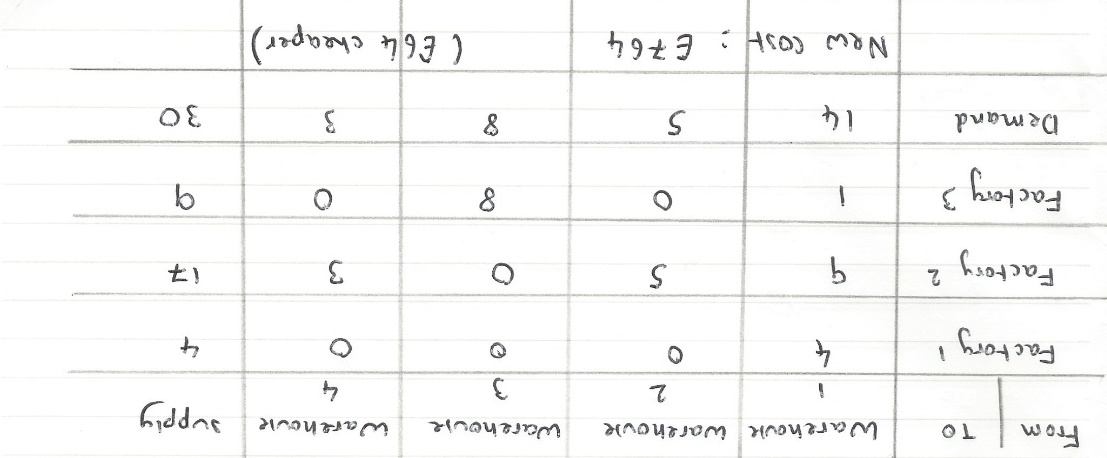 From | To Warehouse 1 Warehouse 2 Warehouse 3 Warehouse 4 Supply
Factory 1 4 0 0 0 4
Factory 2 9 5 0 3 17
Factory 3 1 0 8 0 9
Demand 14 5 8 3 30
New cost : £764 (£64 cheaper)